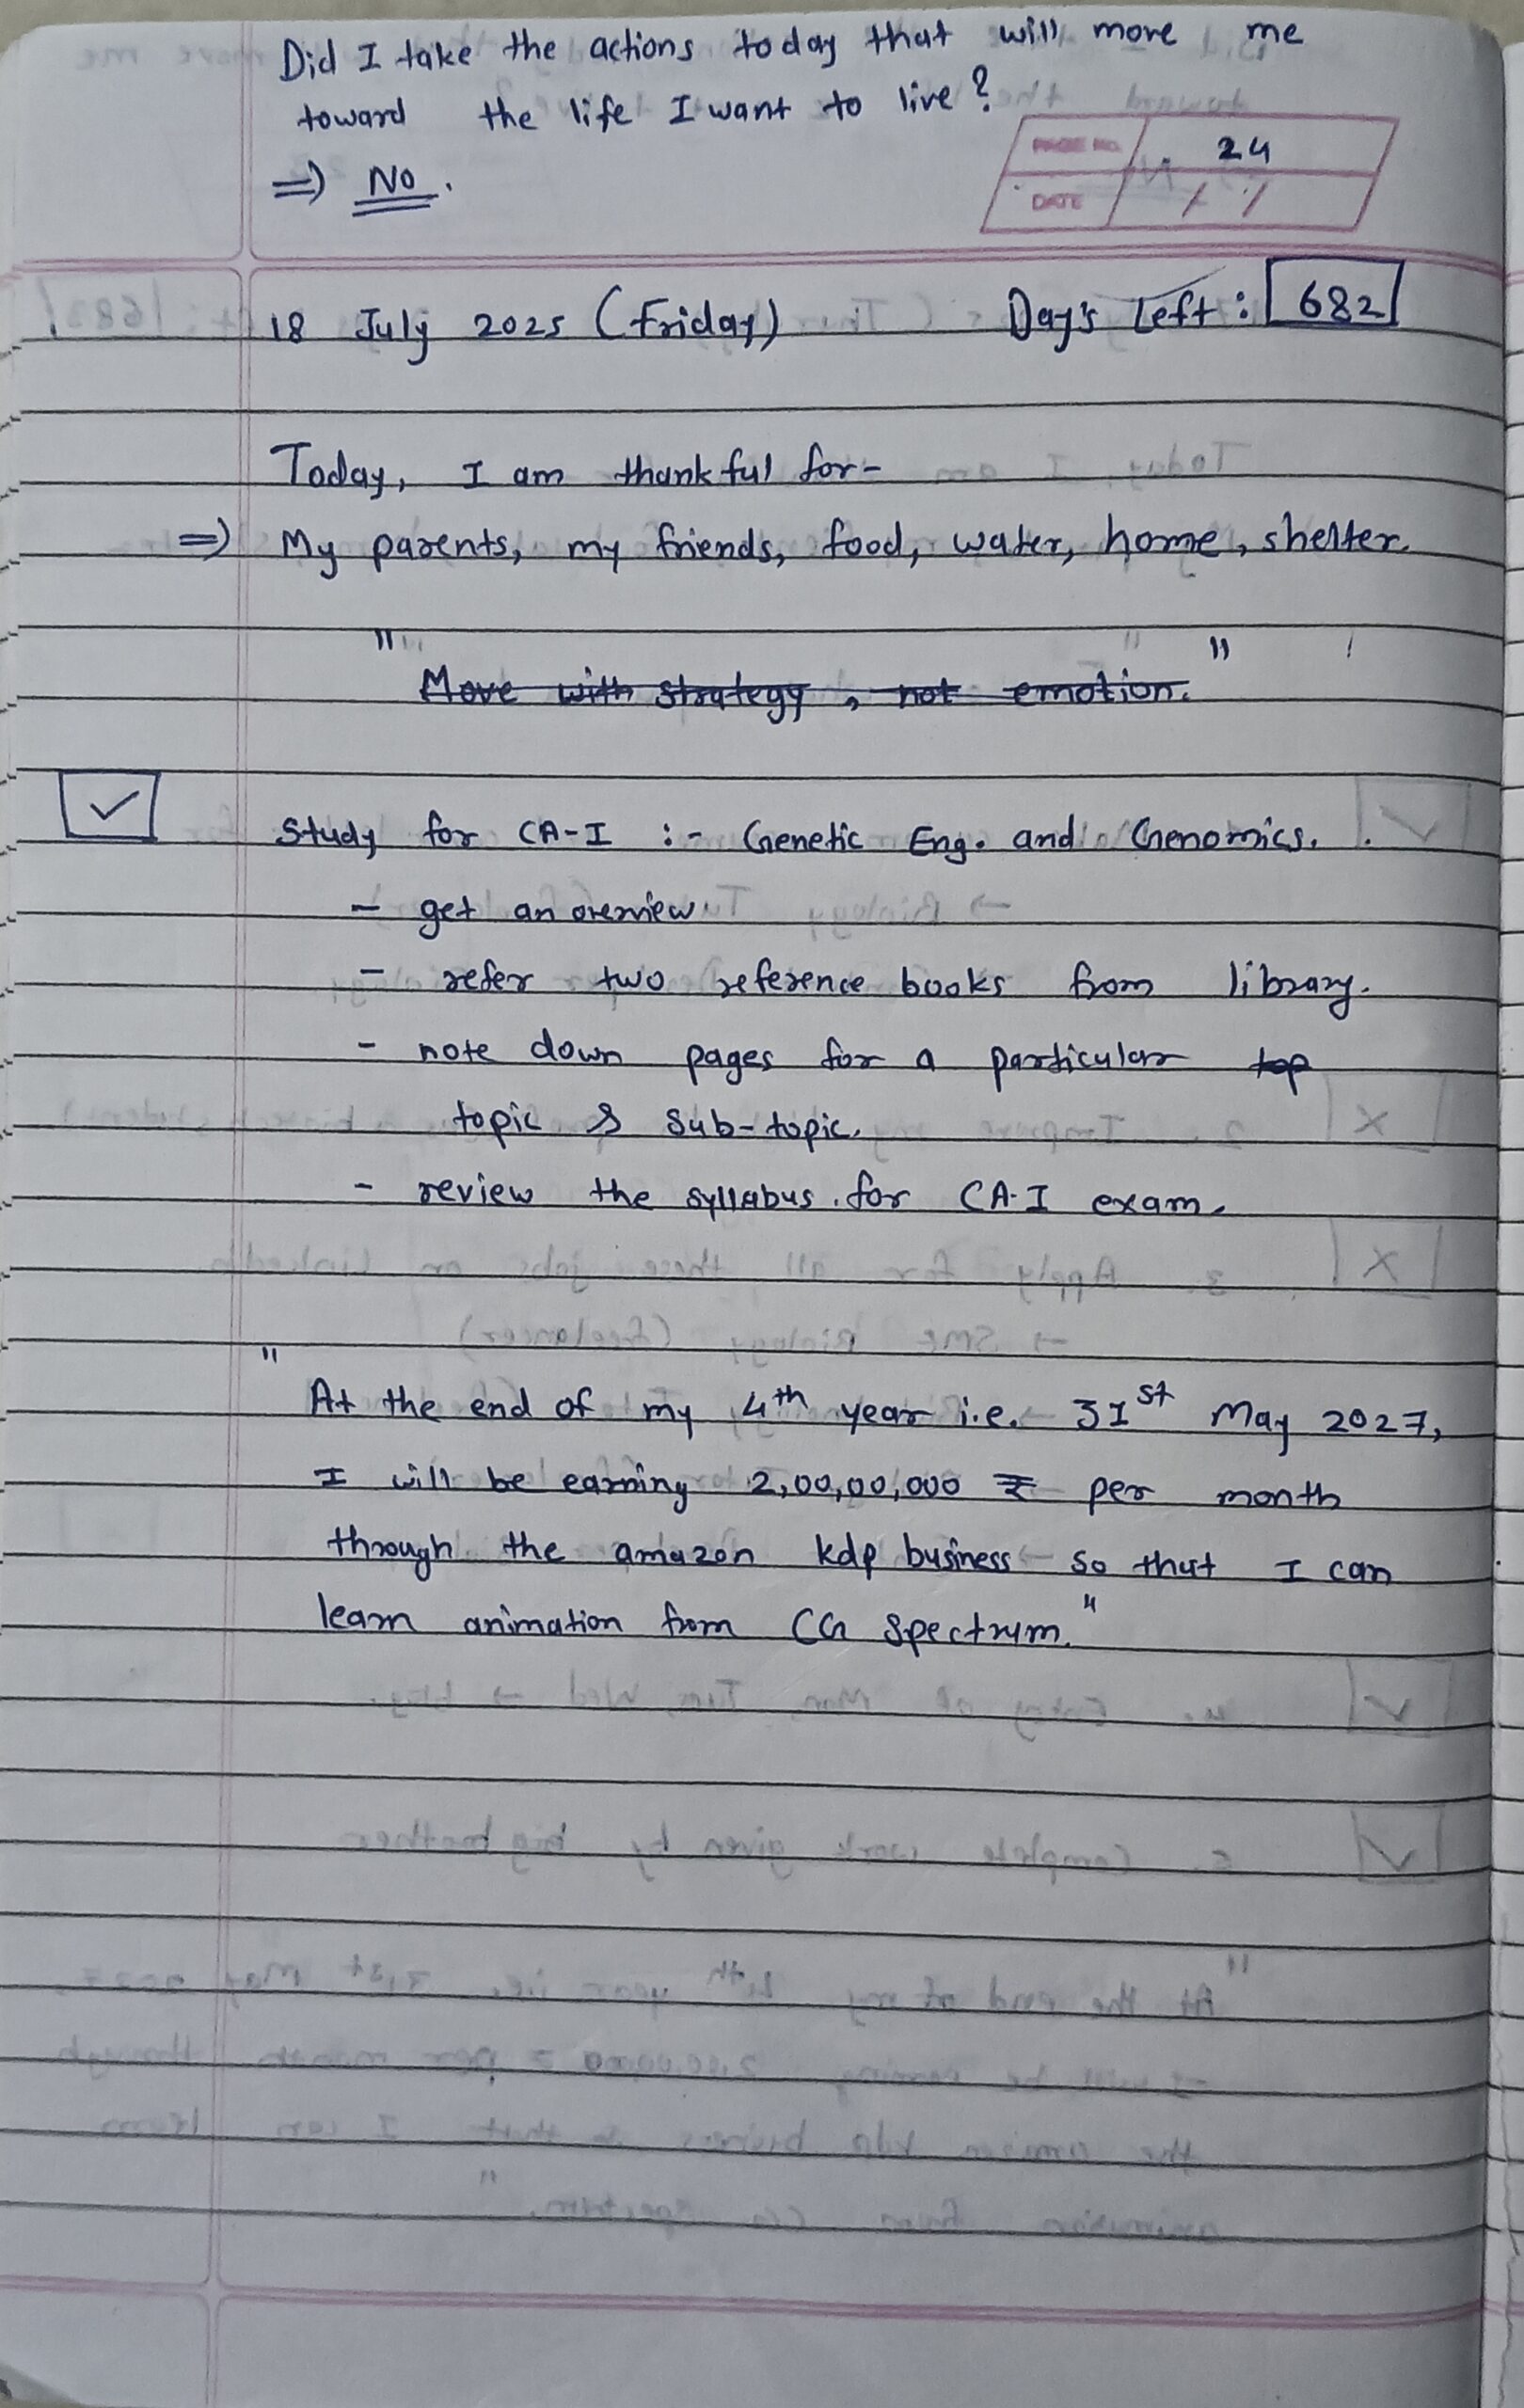 Did I take the actions today that will move me
toward the life I want to live?
⇒ No.
PAGE NO. 24
DATE / /
18 July 2025 (Friday) Day's Left: 682
Today, I am thankful for-
⇒ My parents, my friends, food, water, home, shelter.
"Move with strategy, not emotion."
Study for CA-I :- Genetic Eng. and Genomics.
- get an overview
- refer two reference books from library.
- note down pages for a particular top
topic & sub-topic.
- review the syllabus for CA-I exam.
"At the end of my 4th year i.e. 31st May 2027,
I will be earning 2,00,00,000 ₹ per month
through the amazon kdp business so that I can
learn animation from CG Spectrum."